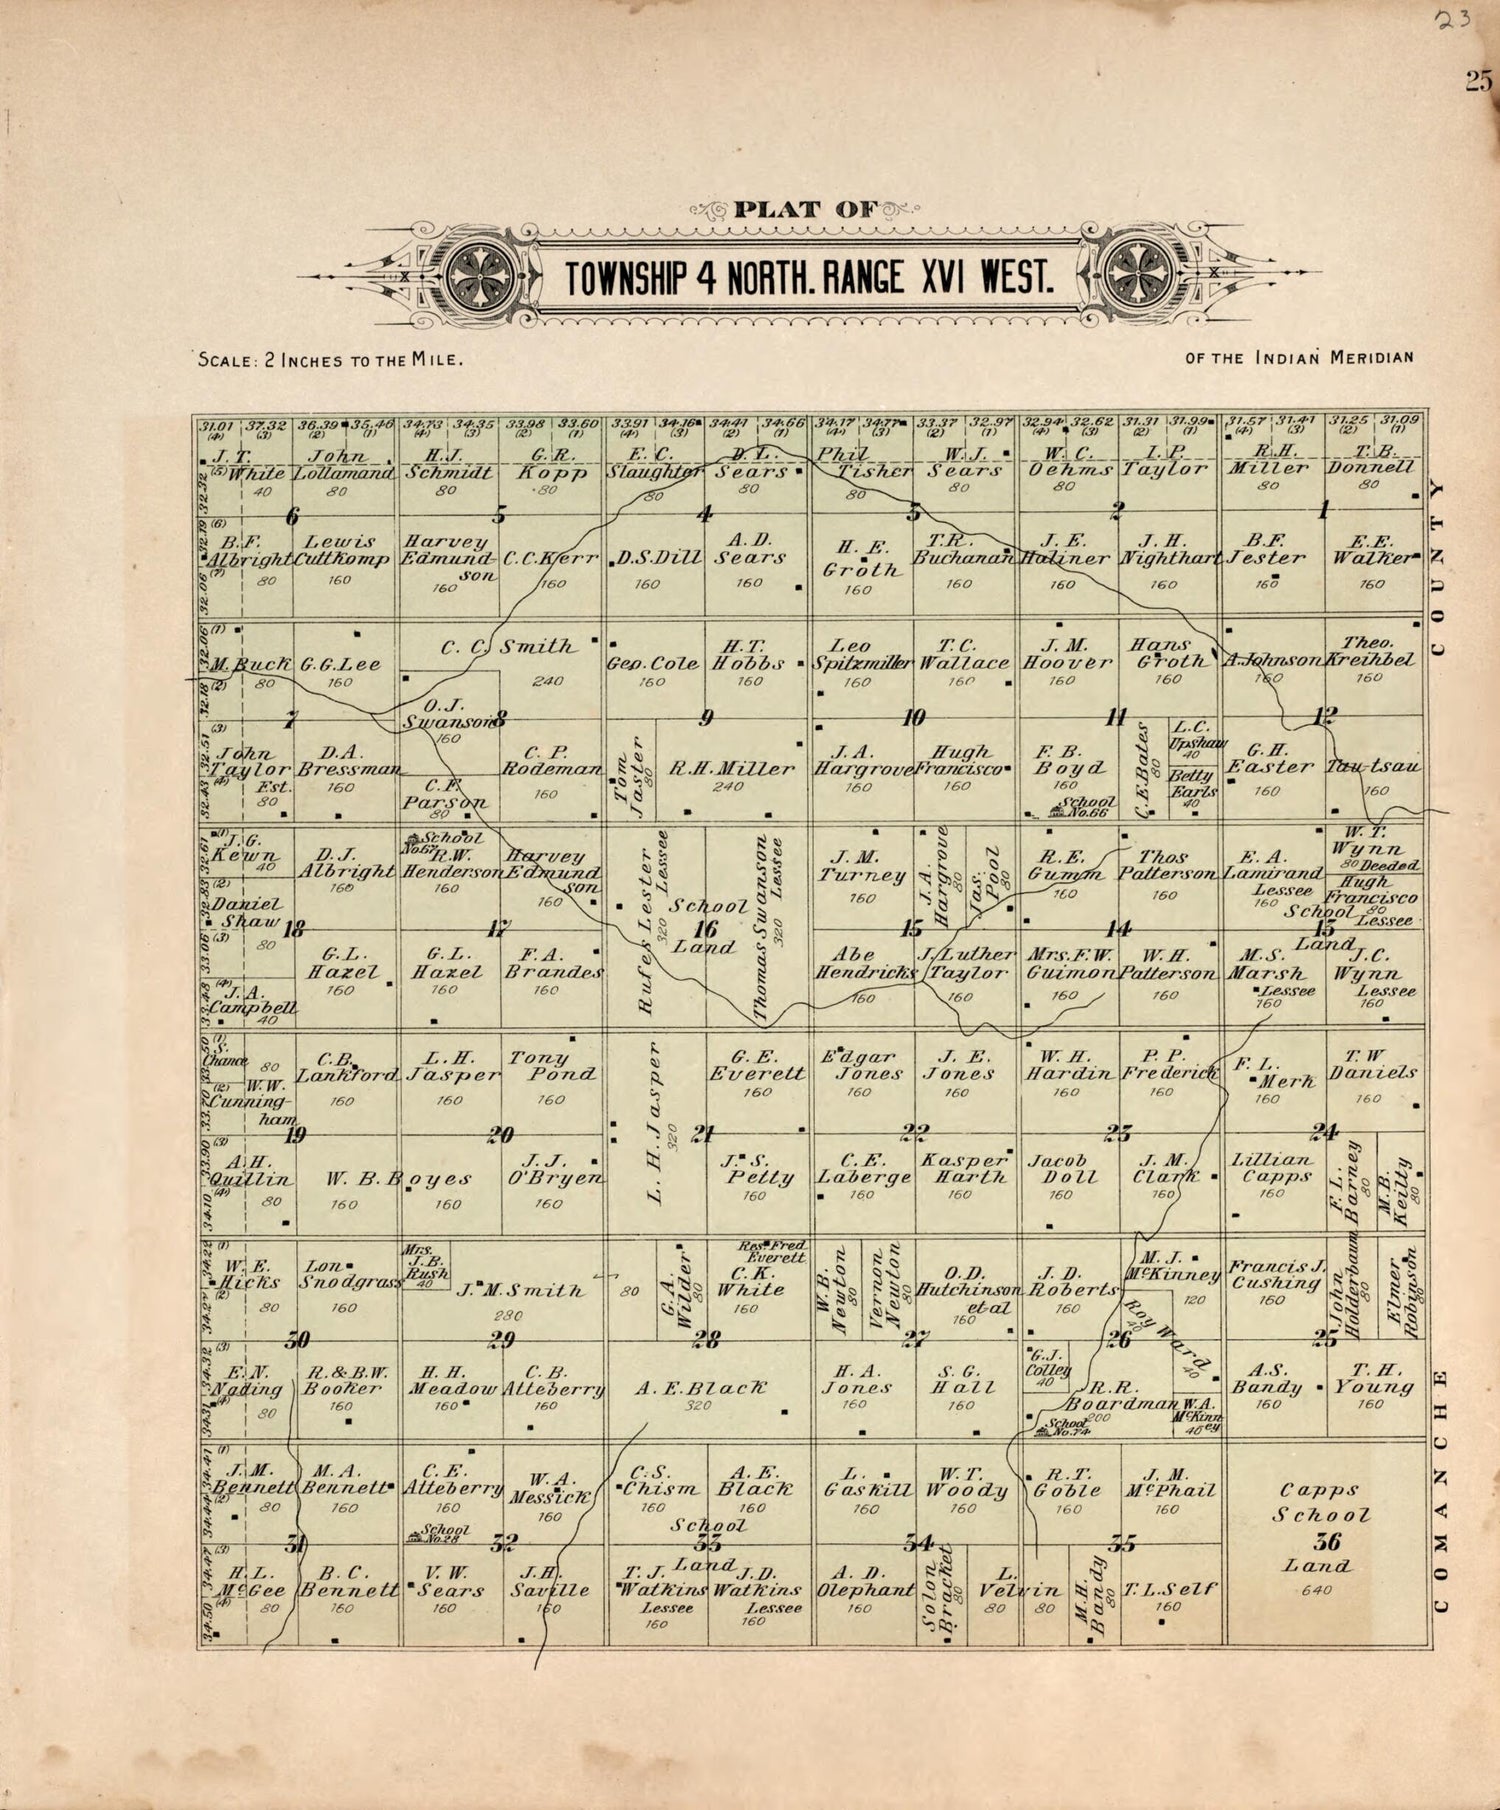 23
25
PLAT OF
TOWNSHIP 4 NORTH. RANGE XVI WEST.
SCALE: 2 INCHES TO THE MILE.
OF THE INDIAN MERIDIAN
31.01 37.32 36.39 35.46 34.73 34.35 33.98 33.60 33.91 34.16 34.41 34.66 34.17 34.77 33.37 32.97 32.94 32.62 31.31 31.99 31.57 31.41 31.25 31.09
(4) (3) (2) (1) (4) (3) (2) (1) (4) (3) (2) (1) (4) (3) (2) (1) (4) (3) (2) (1) (4) (3) (2) (1)
J. T. White 40
John Lollamand 80
H.J. Schmidt 80
G.R. Kopp 80
E. C. Slaughter 80
D. L. Sears 80
Phil Tisher 80
W. J. Sears 80
W. C. Oehms 80
I. P. Taylor
R.H. Miller 80
T.B. Donnell 80
6 5 4 3 2 1
B.F. Albright 80
Lewis Cuttkomp 160
Harvey Edmund-son 160
C.C. Kerr 160
D.S. Dill 160
A.D. Sears 160
H. E. Groth 160
T.R. Buchanan 160
J.E. Haliner 160
J.H. Nighthart 160
B.F. Jester 160
E.E. Walker 160
M. Buck 80
G.G. Lee 160
C. C. Smith 240
O.J. Swanson 160
Geo. Cole 160
H.T. Hobbs 160
Leo Spitzmiller 160
T.C. Wallace 160
J.M. Hoover 160
Hans Groth 160
A. Johnson 160
Theo. Kreihbel 160
7 8 9 10 11 12
John Taylor Est. 80
D.A. Bressman 160
C.F. Parson 80
C. P. Rodeman 160
Tom Jaster 80
R.H. Miller 240
J.A. Hargrove 160
Hugh Francisco 160
F. B. Boyd 160
School No.66
C.E. Bates 80
L.C. Upshaw 40
Betty Earls 40
G.H. Easter 160
Tau-tsau 160
J.G. Kewn 40
Daniel Shaw 80
D.J. Albright 160
School No.67
R.W. Henderson 160
Harvey Edmund son 160
Rufes Lester Lessee 320
School Land
Thomas Swanson Lessee 320
J.M. Turney 160
J.A. Hargrove 80
Jas. Pool 80
R.E. Gumm 160
Thos Patterson 160
E. A. Lamirand Lessee 160
W. T. Wynn 80 Deeded
Hugh Francisco 80 Lessee
School Land
18 17 16 15 14 13
J. A. Campbell 40
G.L. Hazel 160
G.L. Hazel 160
F.A. Brandes 160
Abe Hendricks 160
J. Luther Taylor 160
Mrs. F.W. Guimon 160
W.H. Patterson 160
M.S. Marsh Lessee 160
J.C. Wynn Lessee 160
S. Chance
80
W.W. Cunning-ham
C.B. Lankford 160
L.H. Jasper 160
Tony Pond 160
L. H. Jasper 320
G.E. Everett 160
Edgar Jones 160
J. E. Jones 160
W. H. Hardin 160
P. P. Frederick 160
F. L. Merk 160
T. W Daniels 160
19 20 21 22 23 24
A.H. Quillin 80
W. B. Boyes 160 160
J.J. O'Bryen 160
J. S. Petty 160
C.E. Laberge 160
Kasper Harth 160
Jacob Doll 160
J.M. Clark 160
Lillian Capps 160
F. L. Barney 80
M.B. Keilty 80
W. E. Hicks 80
Lon Snodgrass 160
Mrs. J.B. Rush 40
J. M. Smith 280
80
G.A. Wilder 80
Res. Fred Everett
C. K. White 160
W.B. Newton 80
Vernon Newton 80
O.D. Hutchinson et al 160
J. D. Roberts 160
M. J. McKinney 120
Roy Ward 40 40
Francis J. Cushing 160
John Holderbaum 80
Elmer Robinson 80
30 29 28 27 26 25
E. N. Nading 80
R. & B.W. Booker 160
H. H. Meadow 160
C. B. Atteberry 160
A. E. Black 320
H. A. Jones 160
S. G. Hall 160
G.J. Colley 40
R. R. Boardman 200
School No.74
W.A. McKinney 40
A.S. Bandy 160
T. H. Young 160
J.M. Bennett 80
M.A. Bennett 160
C. E. Atteberry 160
School No.28
W.A. Messick 160
C. S. Chism 160
A. E. Black 160
School Land
L. Gaskill 160
W.T. Woody 160
R.T. Goble 160
J. M. McPhail 160
Capps School Land 640
31 32 33 34 35 36
H.L. McGee 80
B. C. Bennett 160
V. W. Sears 160
J.H. Saville 160
T. J. Watkins Lessee 160
J.D. Watkins Lessee 160
A. D. Olephant 160
Solon Bracket 80
L. Velvin 80 80
M.H. Bandy 80
T. L. Self 160
COMANCHE COUNTY